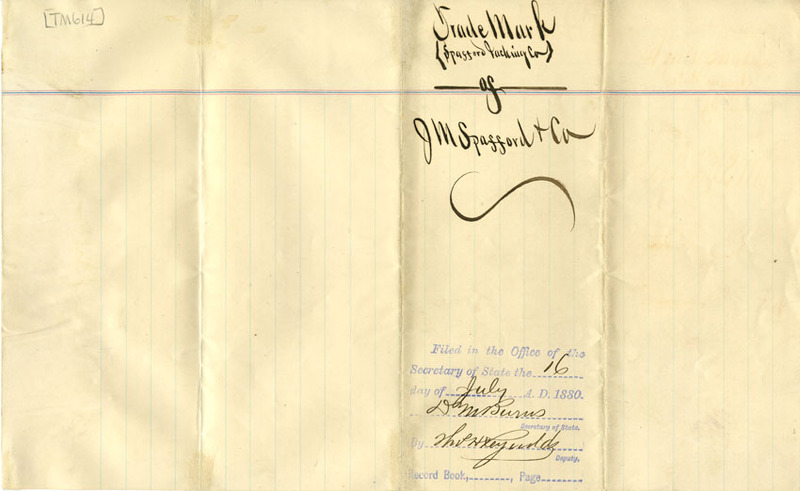 [TM614]
Trade Mark
(Spafford Packing Co)
of
J M Spafford & Co
Filed in the Office of the
Secretary of State the 16
day of July A. D. 1880.
D M Burns
Secretary of State.
By Thos H Reynolds
Deputy.
Record Book, Page